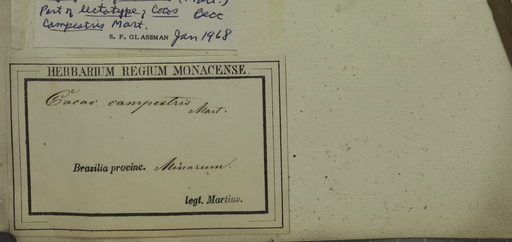 (Mart.)
Part of lectotype, Cocos Becc
Campestris Mart.
S. F. GLASSMAN Jan 1968
HERBARIUM REGIUM MONACENSE.
Cocos campestris
Mart.
Brasilia provinc. Minarum.
legt. Martius.